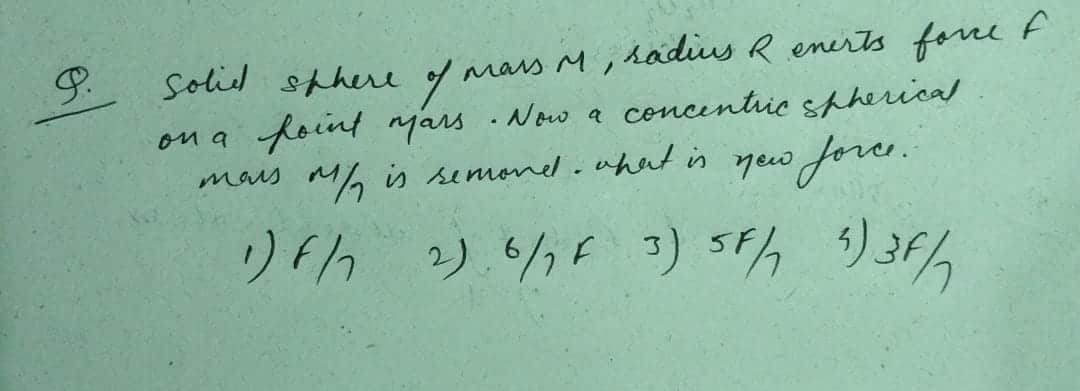 Q. Solid sphere of mass M, radius R exerts force F
on a point mass. Now a concentric spherical
mass M/7 is removed. what is new force.
1) F/7 2) 6/7 F 3) 5F/7 4) 3F/7